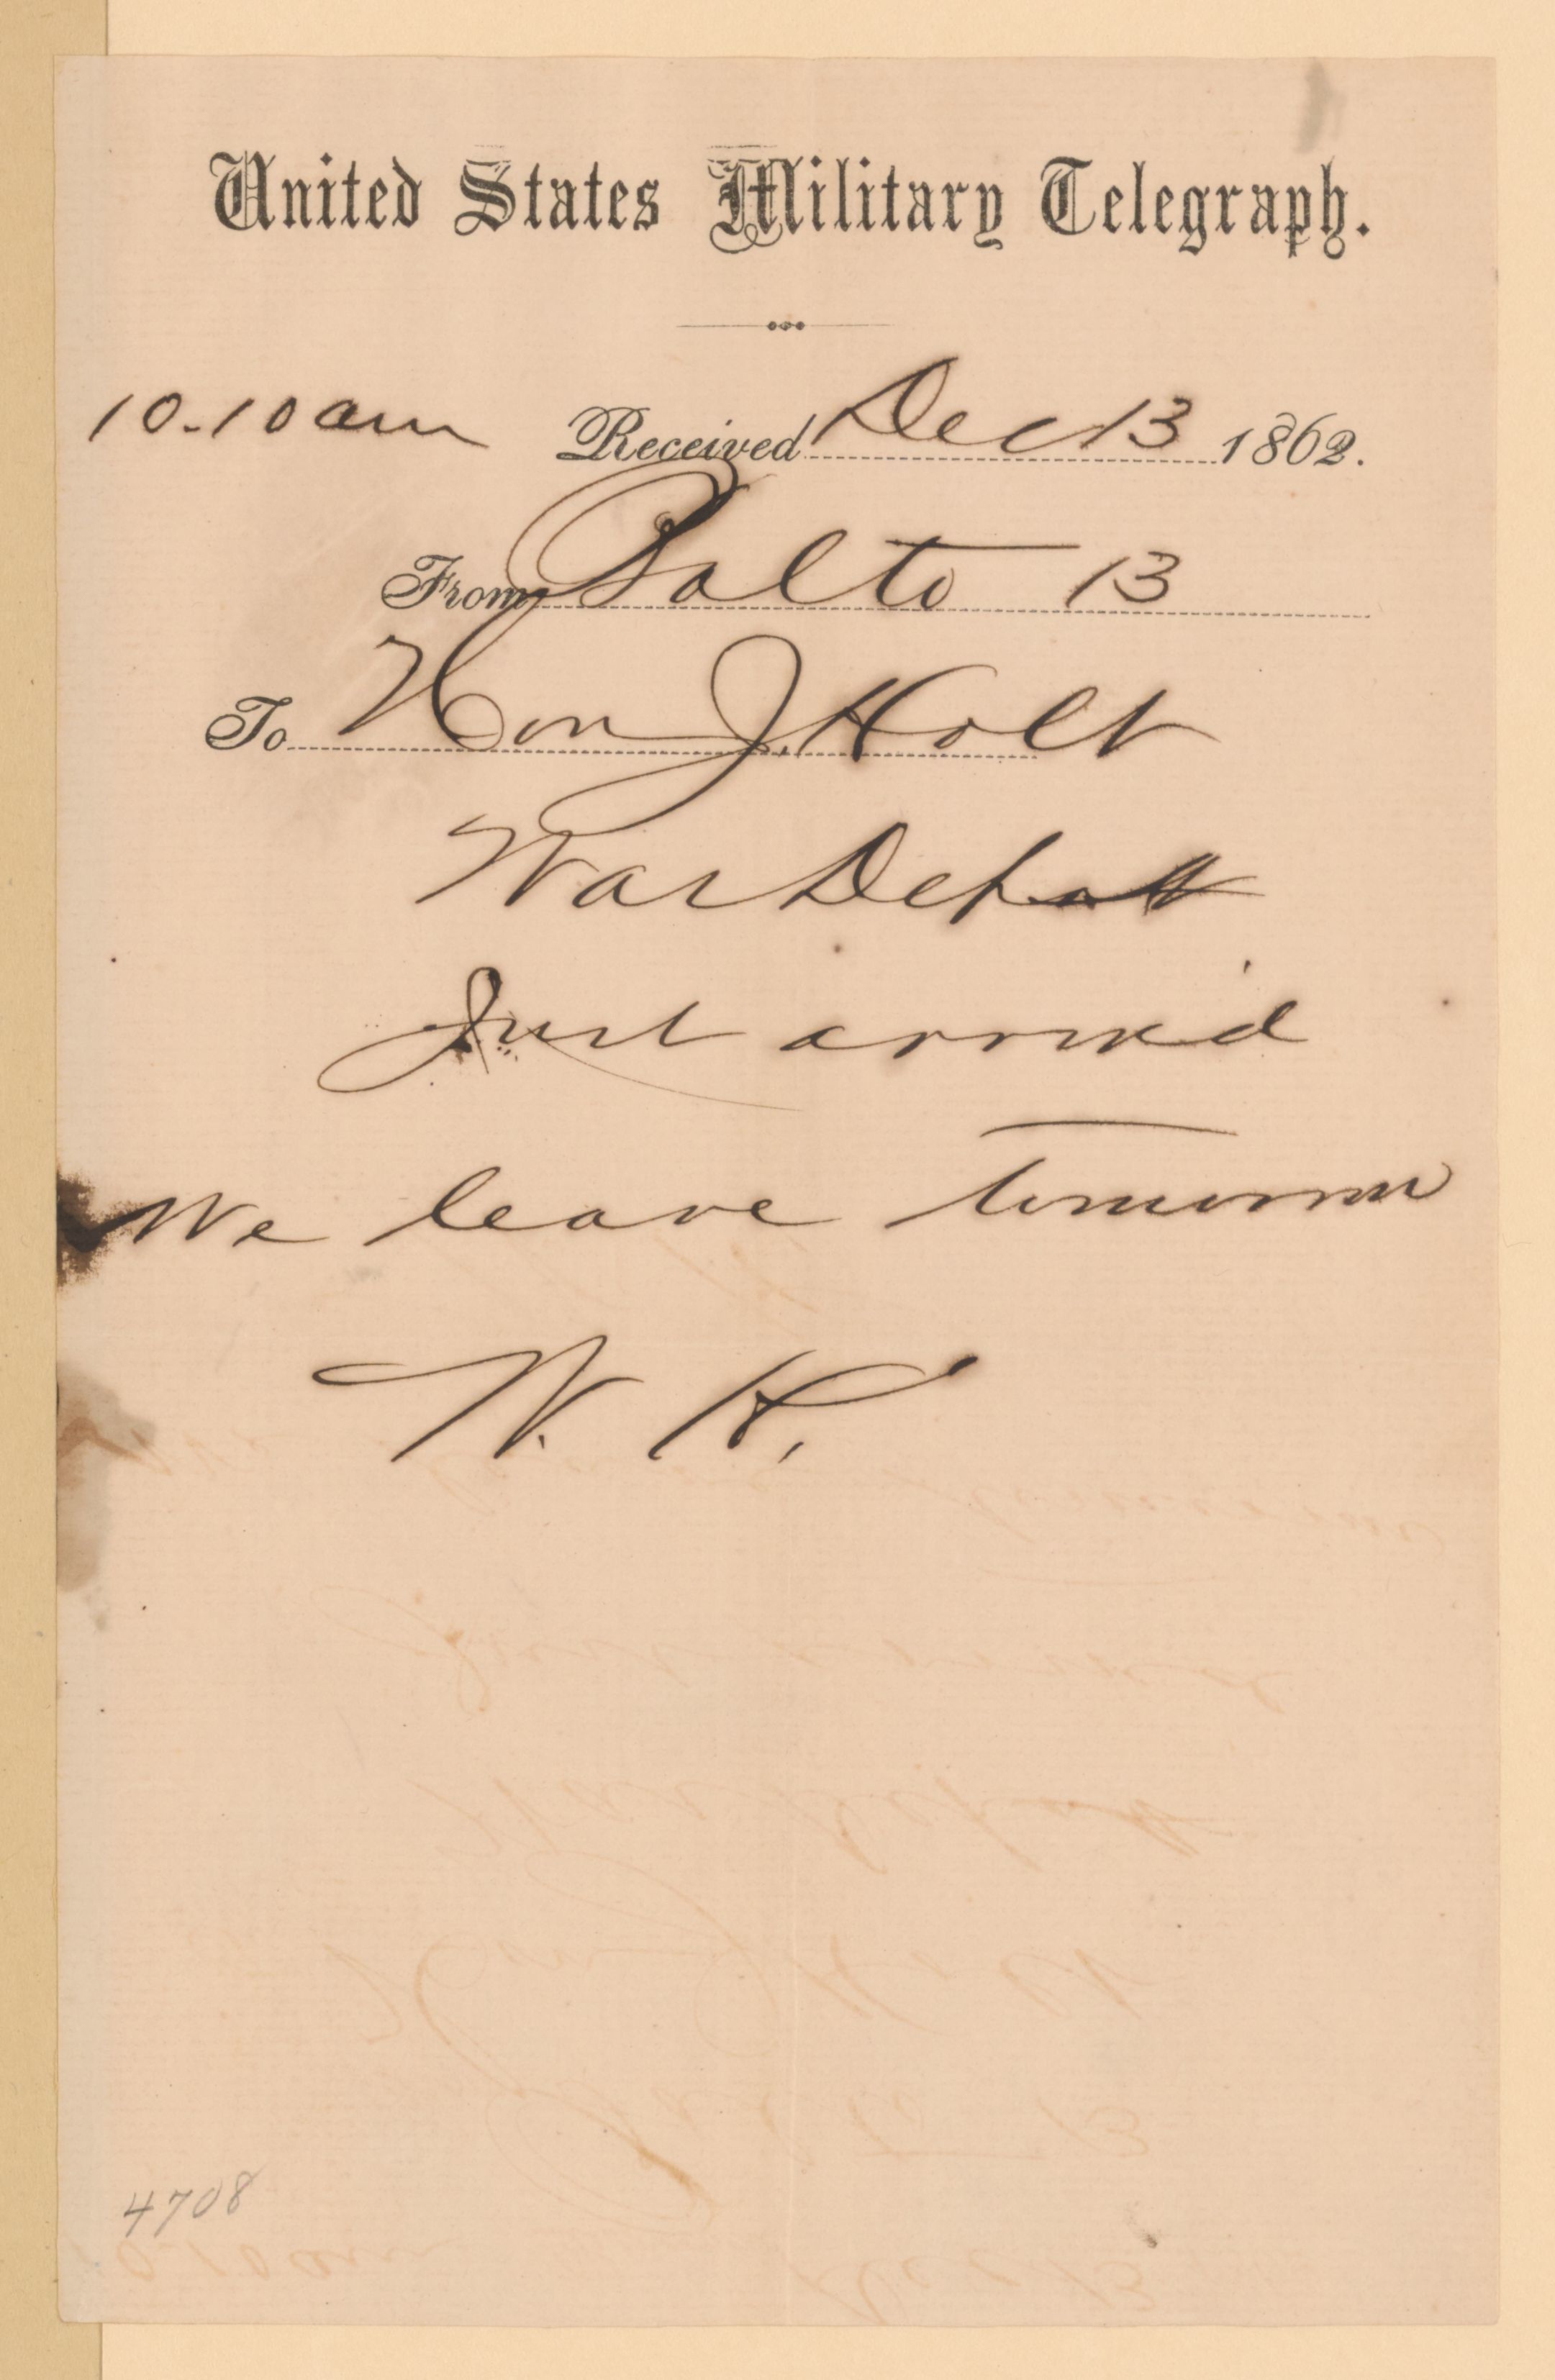 United States Military Telegraph.
10.10 am Received Dec 13 1862.
From Balto 13
To Hon J. Holt
War Dept
Just arrived
We leave tomorrow
W. H.
4708